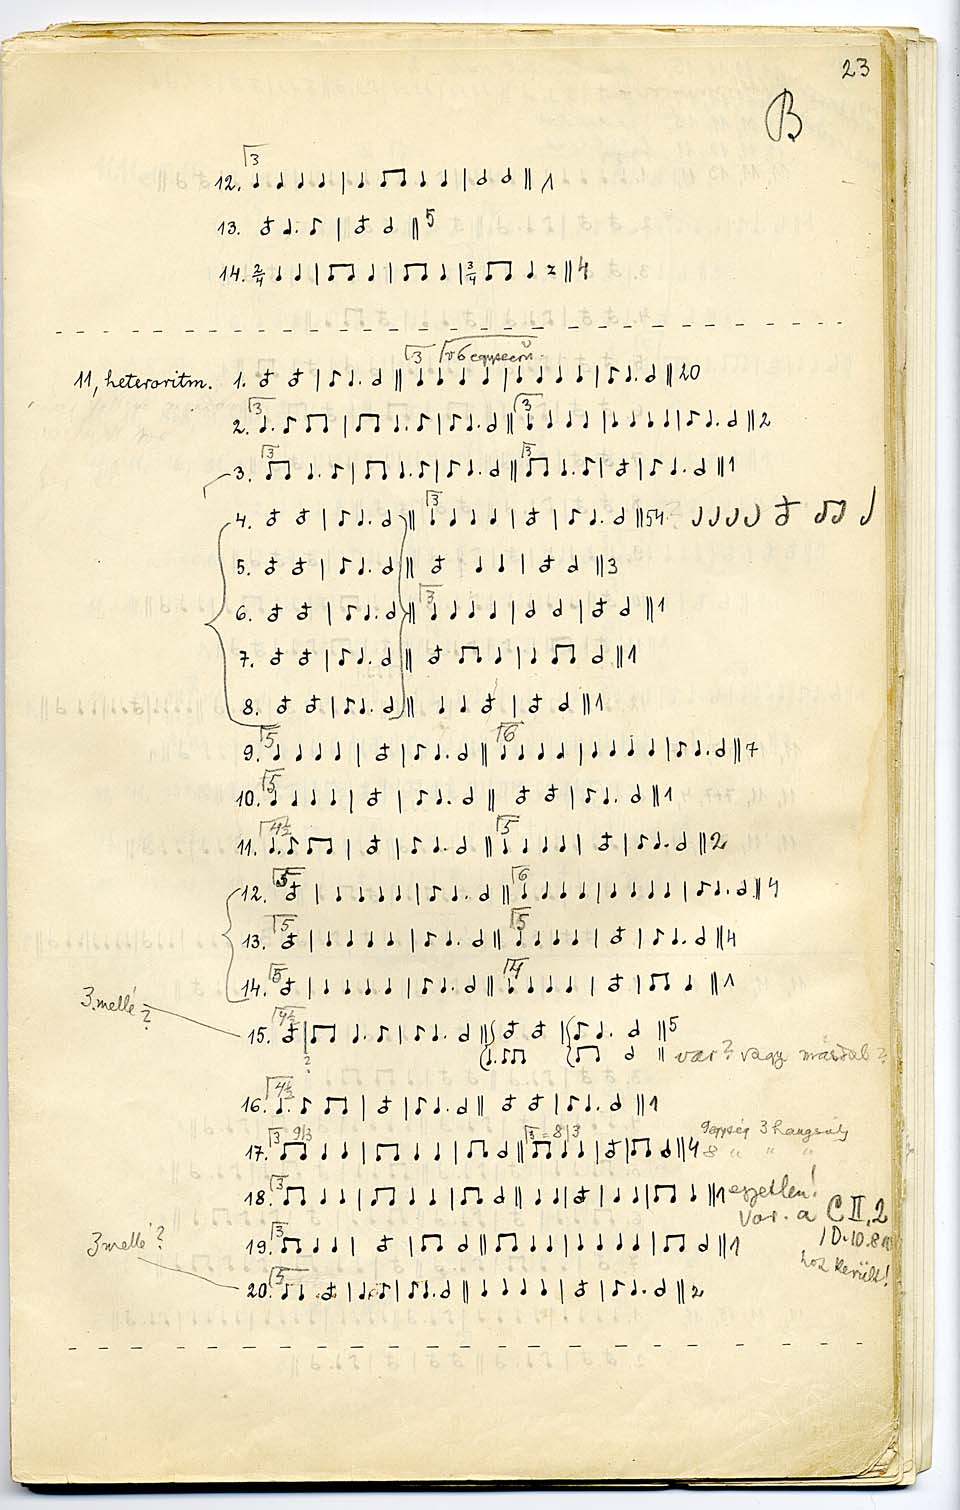 23
B
12. 3 1
13. 5
14. 2/4 3/4 4
3 6 egyszerű
11, heteroritm. 1. 20
2. 3 3 2
3. 3 3 1
4. 3 54
5. 3
6. 3 1
7. 1
8. 1
9. 5 6 7
10. 5 1
11. 4½ 5 2
12. 5 6 4
13. 5 5 4
14. 5 4 1
3. mellé?
15. 4½ 5
? var? vagy másdal?
16. 4½ 1
17. 3 9|3 3 = 8|3 4 9 egység 3 hangsúly
8 " " "
18. 3 1 egyetlen!
Var. a C II, 2
19. 3 1
hoz került!
3 mellé?
20. 5 2